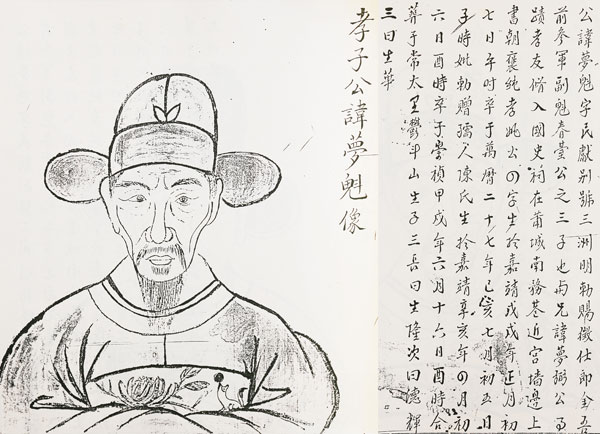 公諱夢魁字民獻別號三洲明勅賜徵仕郎金吾
前參軍副魁春臺公之三子也與兄諱夢弼公
蹟孝友脩入國史祠在莆城南務巷近宮墻邊上
書朝褒純孝公字生於嘉靖戊戌年正月初
七日午时卒于萬曆二十七年己亥七月初五日
子時妣勅贈孺人陳氏生於嘉靖辛亥年四月初
六日酉時卒于崇禎甲戌年六月十六日酉時合
葬于常太里斗山生子三長曰生隆次曰德輝
三曰生華
孝子公諱夢魁像